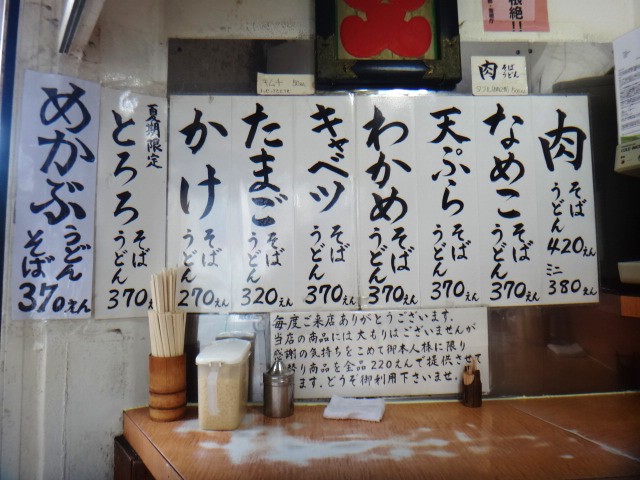 根絶!!
肉 そば
うどん
キムチ
肉
そば
うどん
420えん
ミニ
380えん
なめこ
そば
うどん
370えん
天ぷら
そば
うどん
370えん
わかめ
そば
うどん
370えん
キャベツ
そば
うどん
370えん
たまご
そば
うどん
320えん
かけ
そば
うどん
270えん
夏期限定
とろろ
そば
うどん
370えん
めかぶ
うどん
そば
370えん
毎度ご来店ありがとうございます。
当店の商品には大もりはございませんが
感謝の気持ちをこめて御本人様に限り
替り商品を全品220えんで提供させて
ます。どうぞ御利用下さいませ。